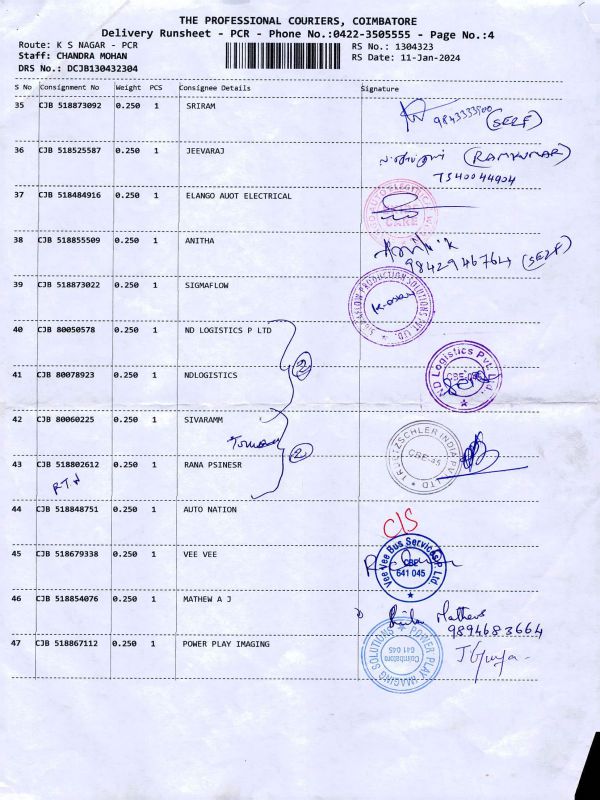 THE PROFESSIONAL COURIERS, COIMBATORE
Delivery Runsheet - PCR - Phone No.:0422-3505555 - Page No.:4
Route: K S NAGAR - PCR RS No.: 1304323
Staff: CHANDRA MOHAN RS Date: 11-Jan-2024
DRS No.: DCJB130432304
S No Consignment No Weight PCS Consignee Details Signature
35 CJB 518873092 0.250 1 SRIRAM
9843333500 (SELF)
36 CJB 518525587 0.250 1 JEEVARAJ (RAMKUMAR)
7540044904
37 CJB 518484916 0.250 1 ELANGO AUOT ELECTRICAL
38 CJB 518855509 0.250 1 ANITHA
9842946764 (SELF)
39 CJB 518873022 0.250 1 SIGMAFLOW
SIGMAFLOW PRODUCTION SOLUTIONS PVT. LTD.
40 CJB 80050578 0.250 1 ND LOGISTICS P LTD
2
41 CJB 80078923 0.250 1 NDLOGISTICS
N.D Logistics Pvt. Ltd.
42 CJB 80060225 0.250 1 SIVARAMM
2
43 CJB 518802612 0.250 1 RANA PSINESR
TRUTZSCHLER INDIA PVT LTD
CBE-45
44 CJB 518848751 0.250 1 AUTO NATION
C/S
45 CJB 518679338 0.250 1 VEE VEE
Vee Vee Bus Services P Ltd.
CBE
641 045
46 CJB 518854076 0.250 1 MATHEW A J
Mathews
9894683664
47 CJB 518867112 0.250 1 POWER PLAY IMAGING
POWER PLAY IMAGING SOLUTIONS
Coimbatore
641 045